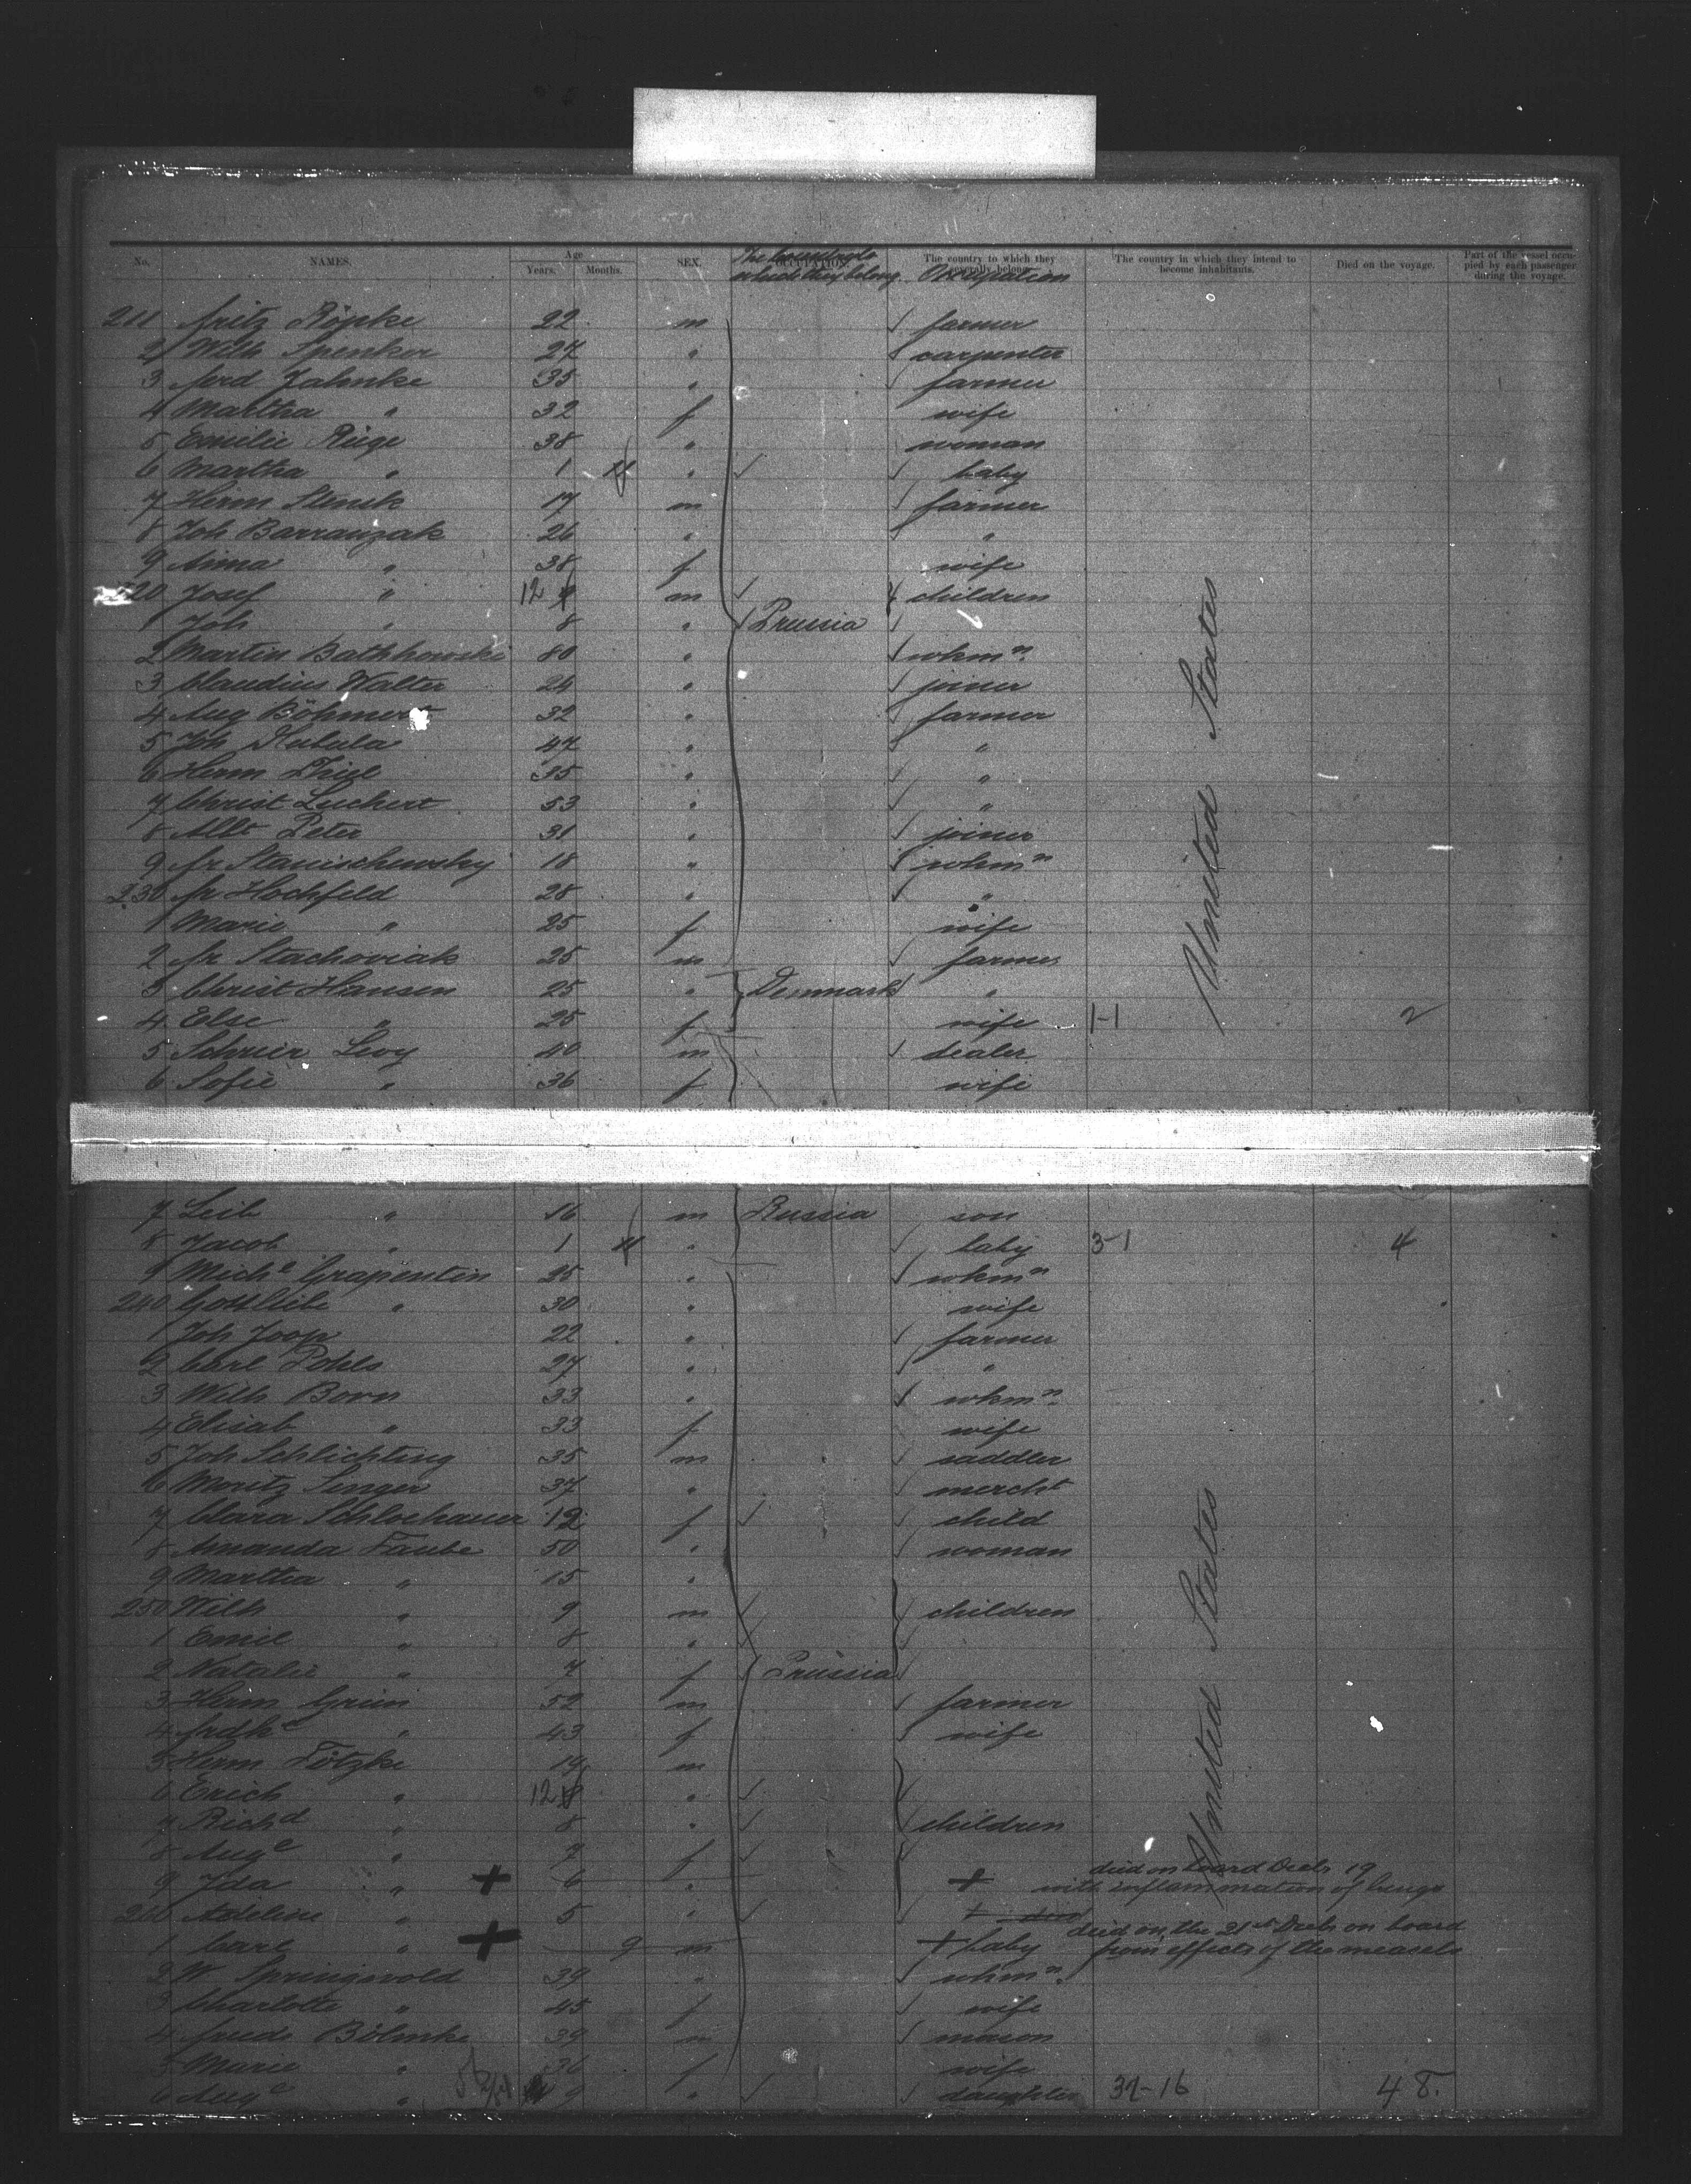 No. NAMES. Age Years. Months. SEX. OCCUPATION. The country to which they belong. The country to which they generally belong. Occupation The country in which they intend to become inhabitants. Died on the voyage. Part of the vessel occupied by each passenger during the voyage.
211 Fritz Röpke 22 m farmer
2 Wilh Spenker 27 " carpenter
3 Ferd Jahnke 35 " farmer
4 Martha " 32 f wife
5 Emilie Rüge 38 " woman
6 Martha " 1 " baby
7 Herm Slenik 17 m farmer
8 Joh Barrauzak 26 " "
9 Anna " 38 f wife
220 Josef " 12 m children
1 Joh " 8 " Prussia
2 Martin Bathkowski 80 " wkmn
3 Claudius Walter 24 " joiner
4 Aug Böhmert 32 " farmer
5 Joh Kubala 47 " "
6 Herm Thiel 35 " "
7 Christ Luchert 53 " "
8 Albt Peter 31 " joiner
9 Fr Stanischewsky 18 " wkmn
230 Fr Hochfeld 28 " "
1 Marie " 25 f wife
2 Fr Stachoviak 25 m farmer
3 Christ Hansen 25 " Denmark "
4 Else " 25 f wife 1-1 2
5 Schrier Levy 40 m dealer
6 Sofie " 36 f wife
United States
7 Leib " 16 m Russia son
8 Jacob " 1 " baby 3-1 4
9 Miche Grapentin 25 " wkmn
240 Gottliebe " 30 " wife
1 Joh Joop 22 " farmer
2 Carl Pohls 27 " "
3 Wilh Born 33 " wkmn
4 Elisab " 33 f wife
5 Joh Schlichting 35 m saddler
6 Moritz Singer 37 " mercht
7 Clara Schlochauer 12 f child
8 Amanda Taube 50 " woman
9 Martha " 15 "
250 Wilh " 9 m children
1 Emil " 8 "
2 Natalie " 7 f Prussia
3 Herm Grün 52 m farmer
4 Frdke " 43 f wife
5 Herm Tötzke 19 m
6 Erich " 12 "
7 Richd " 8 " children
8 Auge " 7 f
9 Ida " + 6 " + died on board Decb 19 with inflammation of lungs
260 Adeline " 5 "
1 Carl " + 9 m + baby died on the 21st Decb on board from effects of the measels
2 W Springwold 39 " wkmn
3 Charlotte " 45 f wife
4 Friedr Bölmke 39 m mason
5 Marie " 36 f wife
6 Auge " 9 " daughter 32-16 48.
United States